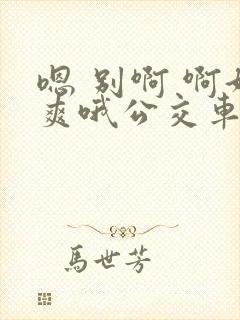 嗯 别啊 啊
爽哦公交車
馬世芳